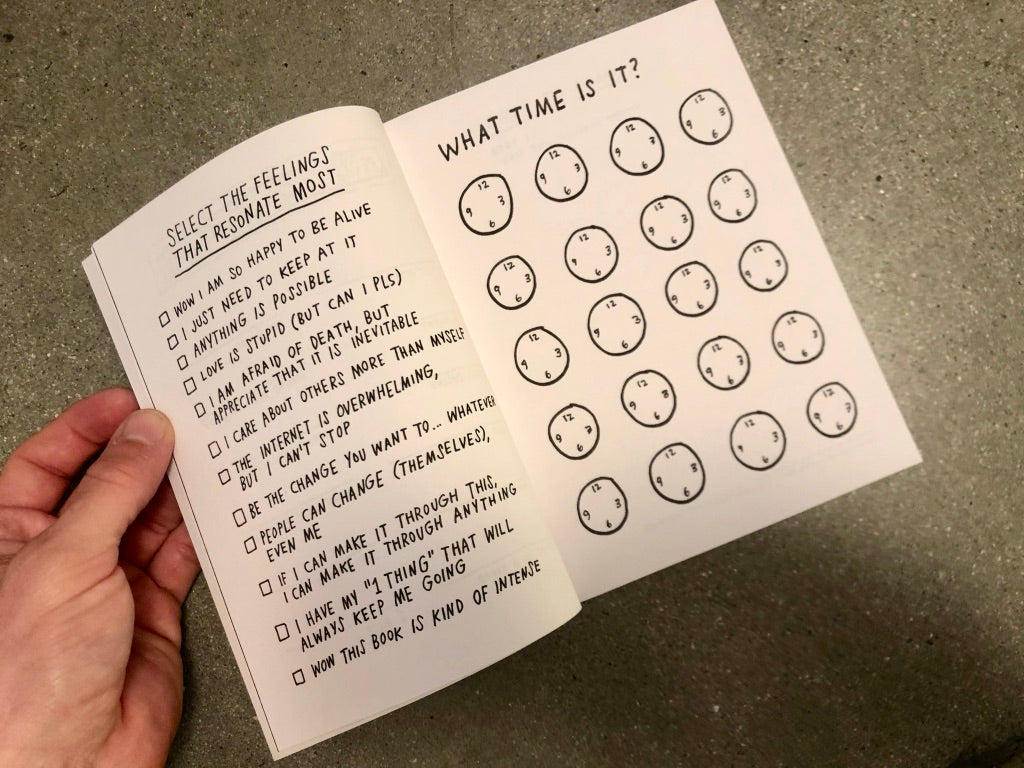 SELECT THE FEELINGS
THAT RESONATE MOST
WOW I AM SO HAPPY TO BE ALIVE
I JUST NEED TO KEEP AT IT
ANYTHING IS POSSIBLE
LOVE IS STUPID (BUT CAN I PLS)
I AM AFRAID OF DEATH, BUT
APPRECIATE THAT IT IS INEVITABLE
I CARE ABOUT OTHERS MORE THAN MYSELF
THE INTERNET IS OVERWHELMING,
BUT I CAN'T STOP
BE THE CHANGE YOU WANT TO... WHATEVER
PEOPLE CAN CHANGE (THEMSELVES),
EVEN ME
IF I CAN MAKE IT THROUGH THIS,
I CAN MAKE IT THROUGH ANYTHING
I HAVE MY "1 THING" THAT WILL
ALWAYS KEEP ME GOING
WOW THIS BOOK IS KIND OF INTENSE
WHAT TIME IS IT?
12 12 12 12
9 3 9 3 9 3 9 3
6 6 6 6
12 12 12 12
9 3 9 3 9 3 9 3
6 6 6 6
12 12 12 12
9 3 9 3 9 3 9 3
6 6 6 6
12 12 12 12
9 3 9 3 9 3 9 3
6 6 6 6
12 12 12 12
9 3 9 3 9 3 9 3
6 6 6 6